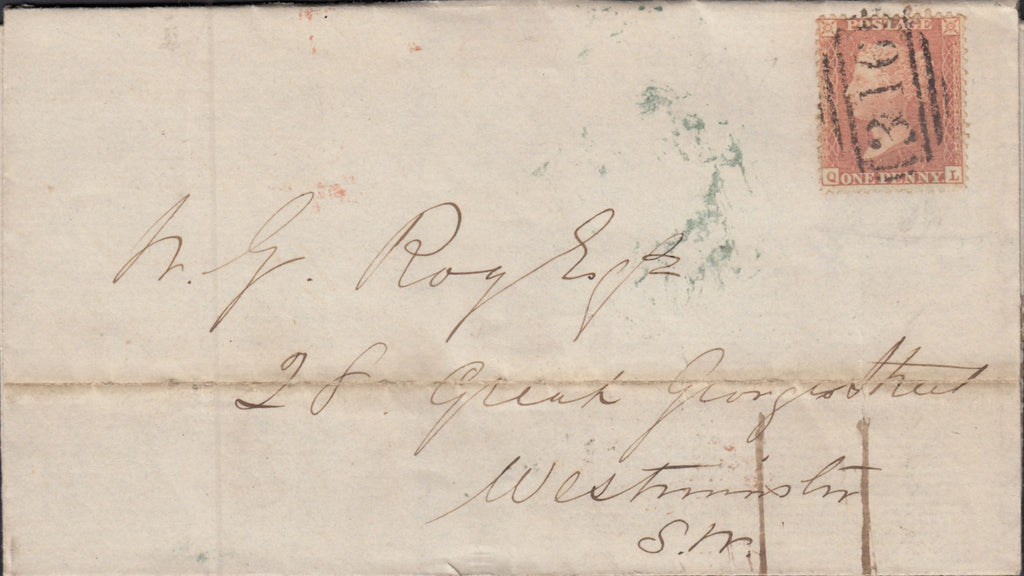 POSTAGE
316
Q ONE PENNY L
W. G. Roy Esqr
28. Great Georges Street
Westminster
S.W.